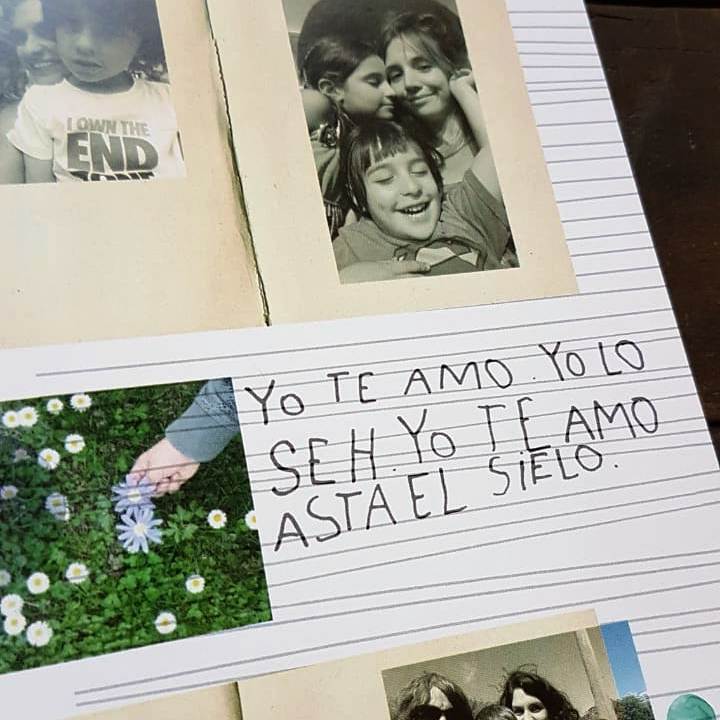 I OWN THE
END
ZONE
YO TE AMO. YO LO
SEH. YO TE AMO
ASTA EL SIELO.